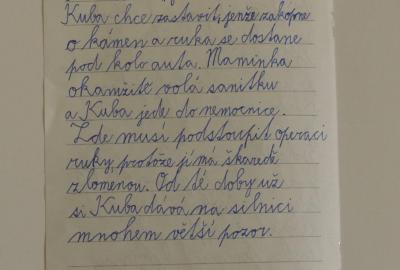 Kuba chce zastavit, jenže zakopne
o kámen a ruka se dostane
pod kolo auta. Maminka
okamžitě volá sanitku
a Kuba jede do nemocnice.
Zde musí podstoupit operaci
ruky, protože ji má škaredě
zlomenou. Od té doby už
si Kuba dává na silnici
mnohem větší pozor.